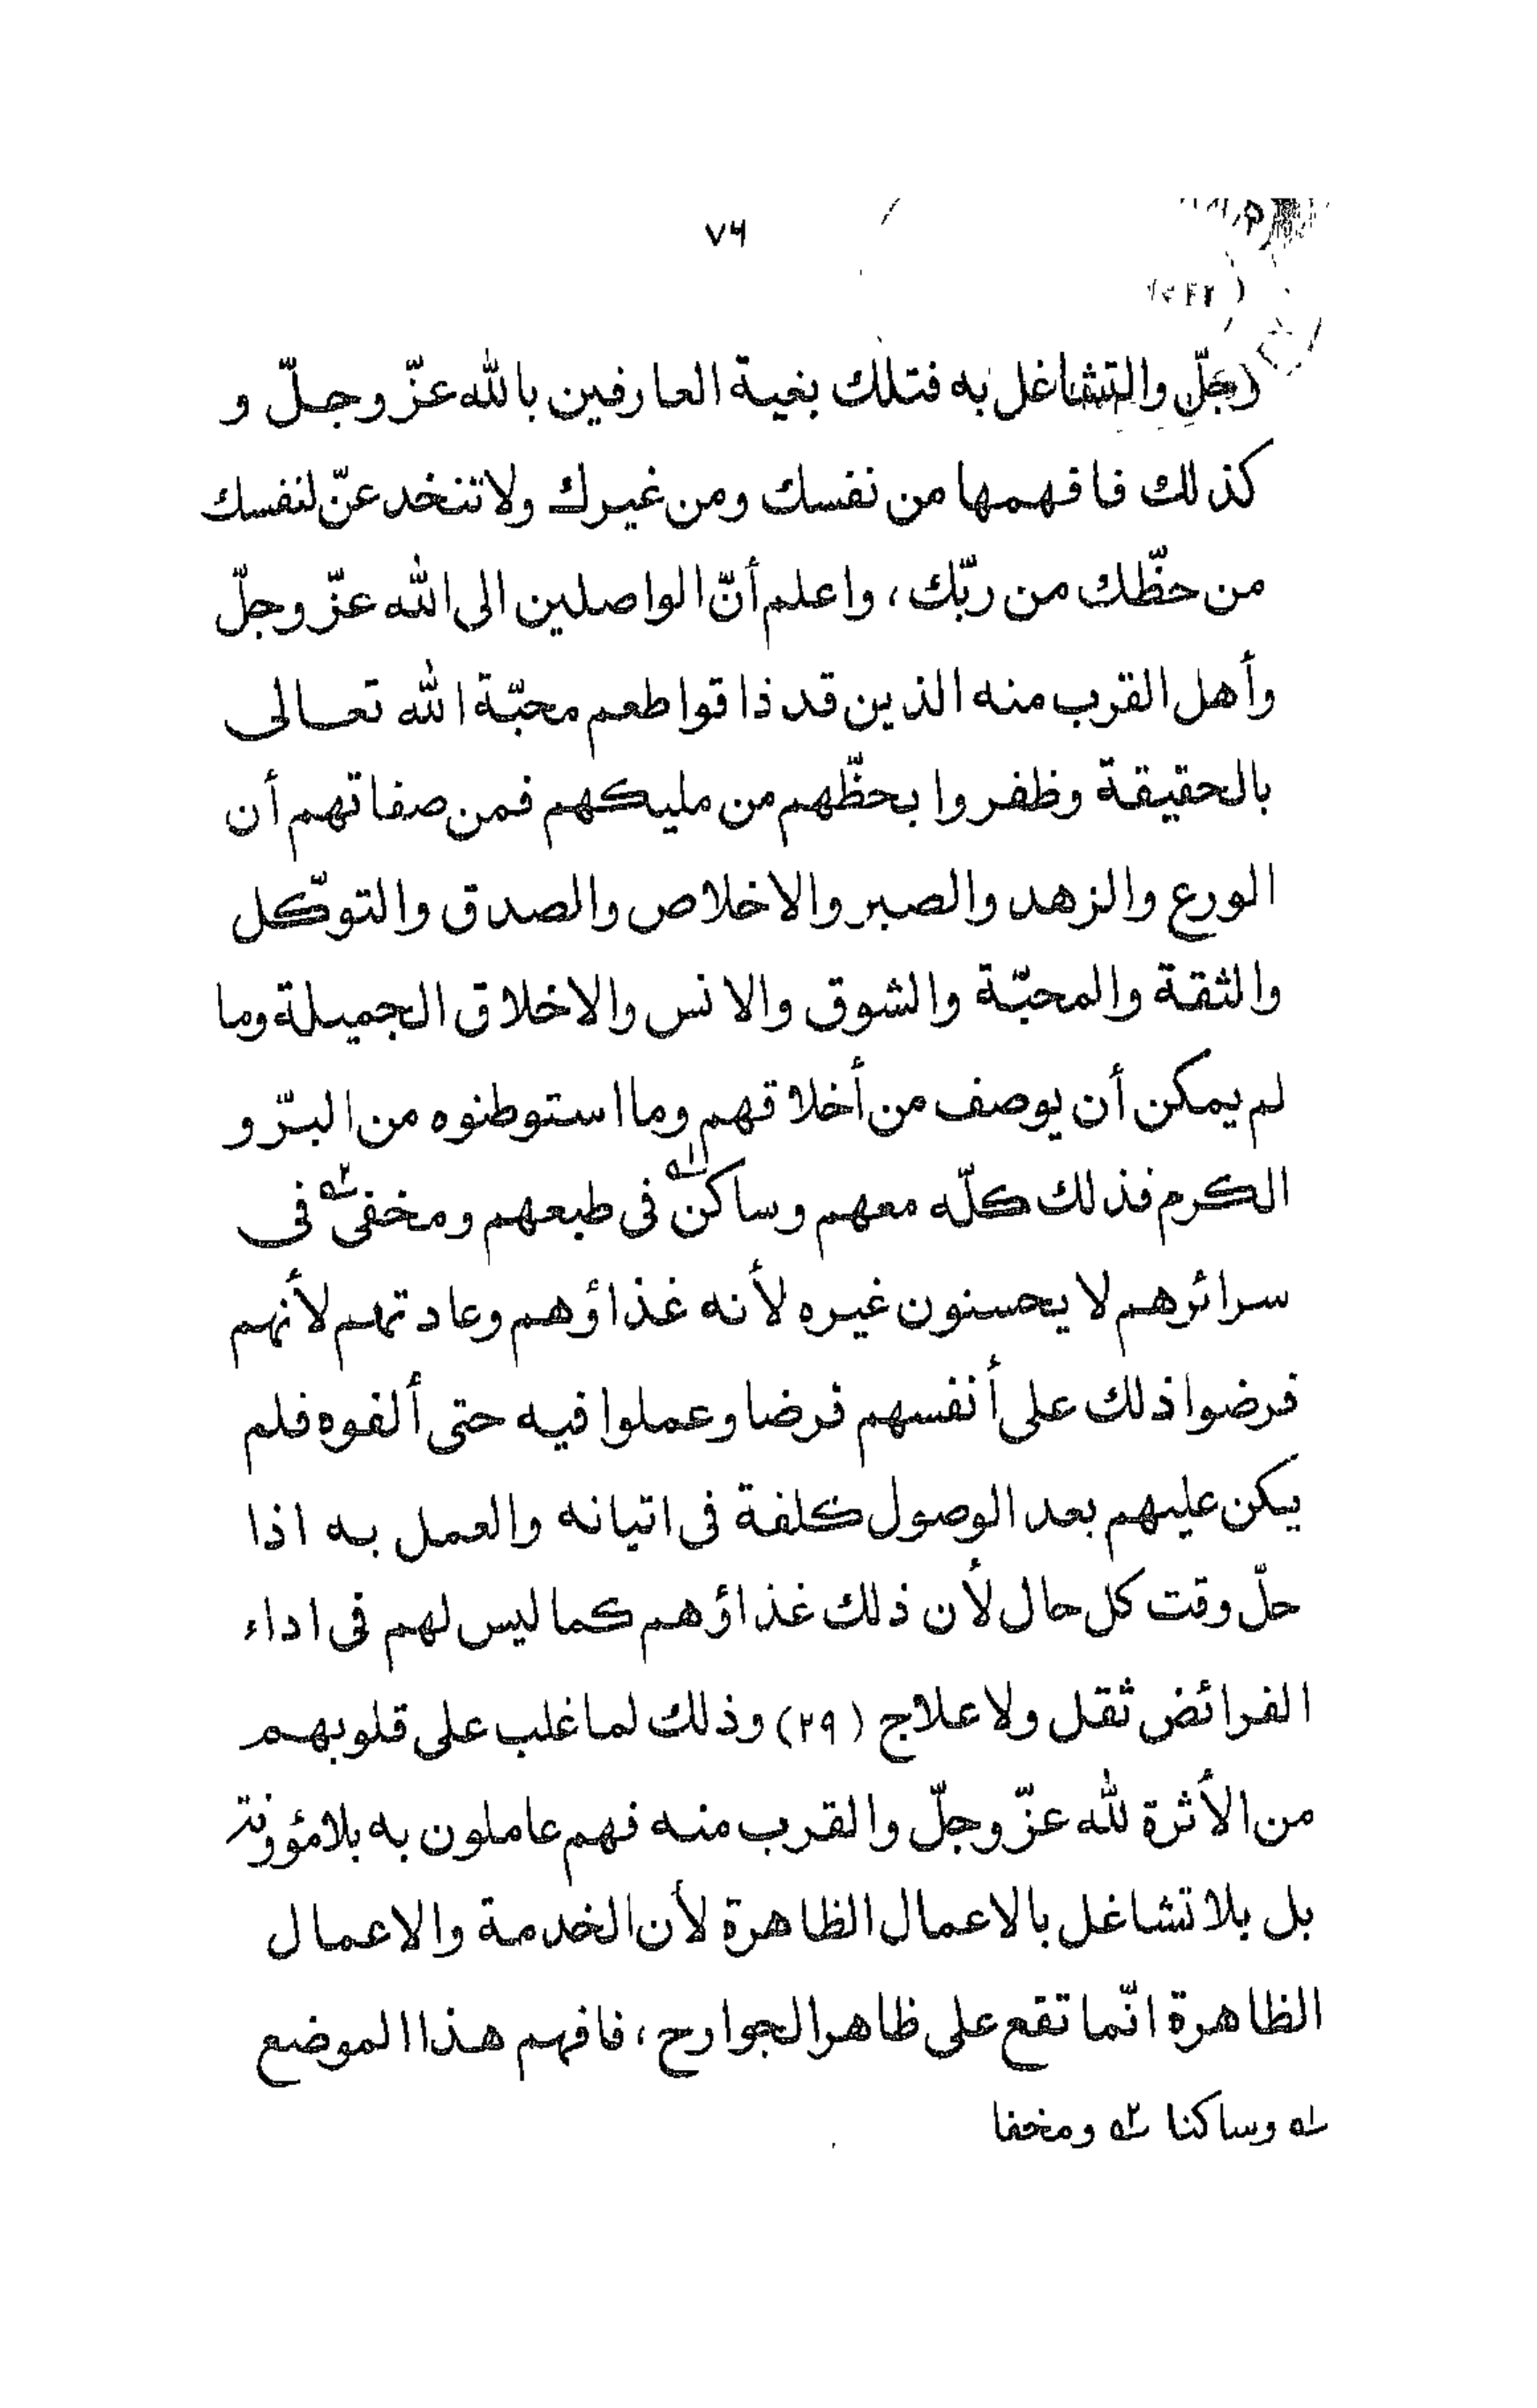 ٧٦
وجلّ والتشاغل به فتلك بغية العارفين بالله عزّ وجلّ و
كذلك فافهمها من نفسك ومن غيرك ولا تنخدعنّ لنفسك
من حظّك من ربّك، واعلم أنّ الواصلين الى الله عزّ وجلّ
وأهل القرب منه الذين قد ذاقوا طعم محبّة الله تعالى
بالحقيقة وظفروا بحظّهم من مليكهم فمن صفاتهم أن
الورع والزهد والصبر والاخلاص والصدق والتوكّل
والثقة والمحبّة والشوق والانس والاخلاق الجميلة وما
لم يمكن أن يوصف من أخلاقهم وما استوطنوه من البرّ و
الكرم فذلك كلّه معهم وساكن١ فى طبعهم ومخفى٢ فى
سرائرهم لا يحسنون غيره لأنه غذاؤهم وعادتهم لأنهم
فرضوا ذلك على أنفسهم فرضا وعملوا فيه حتى ألفوه فلم
يكن عليهم بعد الوصول كلفة فى اتيانه والعمل به اذا
حلّ وقت كل حال لأن ذلك غذاؤهم كما ليس لهم فى اداء
الفرائض ثقل ولا علاج (٢٩) وذلك لما غلب على قلوبهم
من الأثرة لله عزّ وجلّ والقرب منه فهم عاملون به بلا مؤونة
بل بلا تشاغل بالاعمال الظاهرة لأن الخدمة والاعمال
الظاهرة انّما تقع على ظاهر الجوارح، فافهم هذا الموضع
١ وساكنا ٢ ومخفا